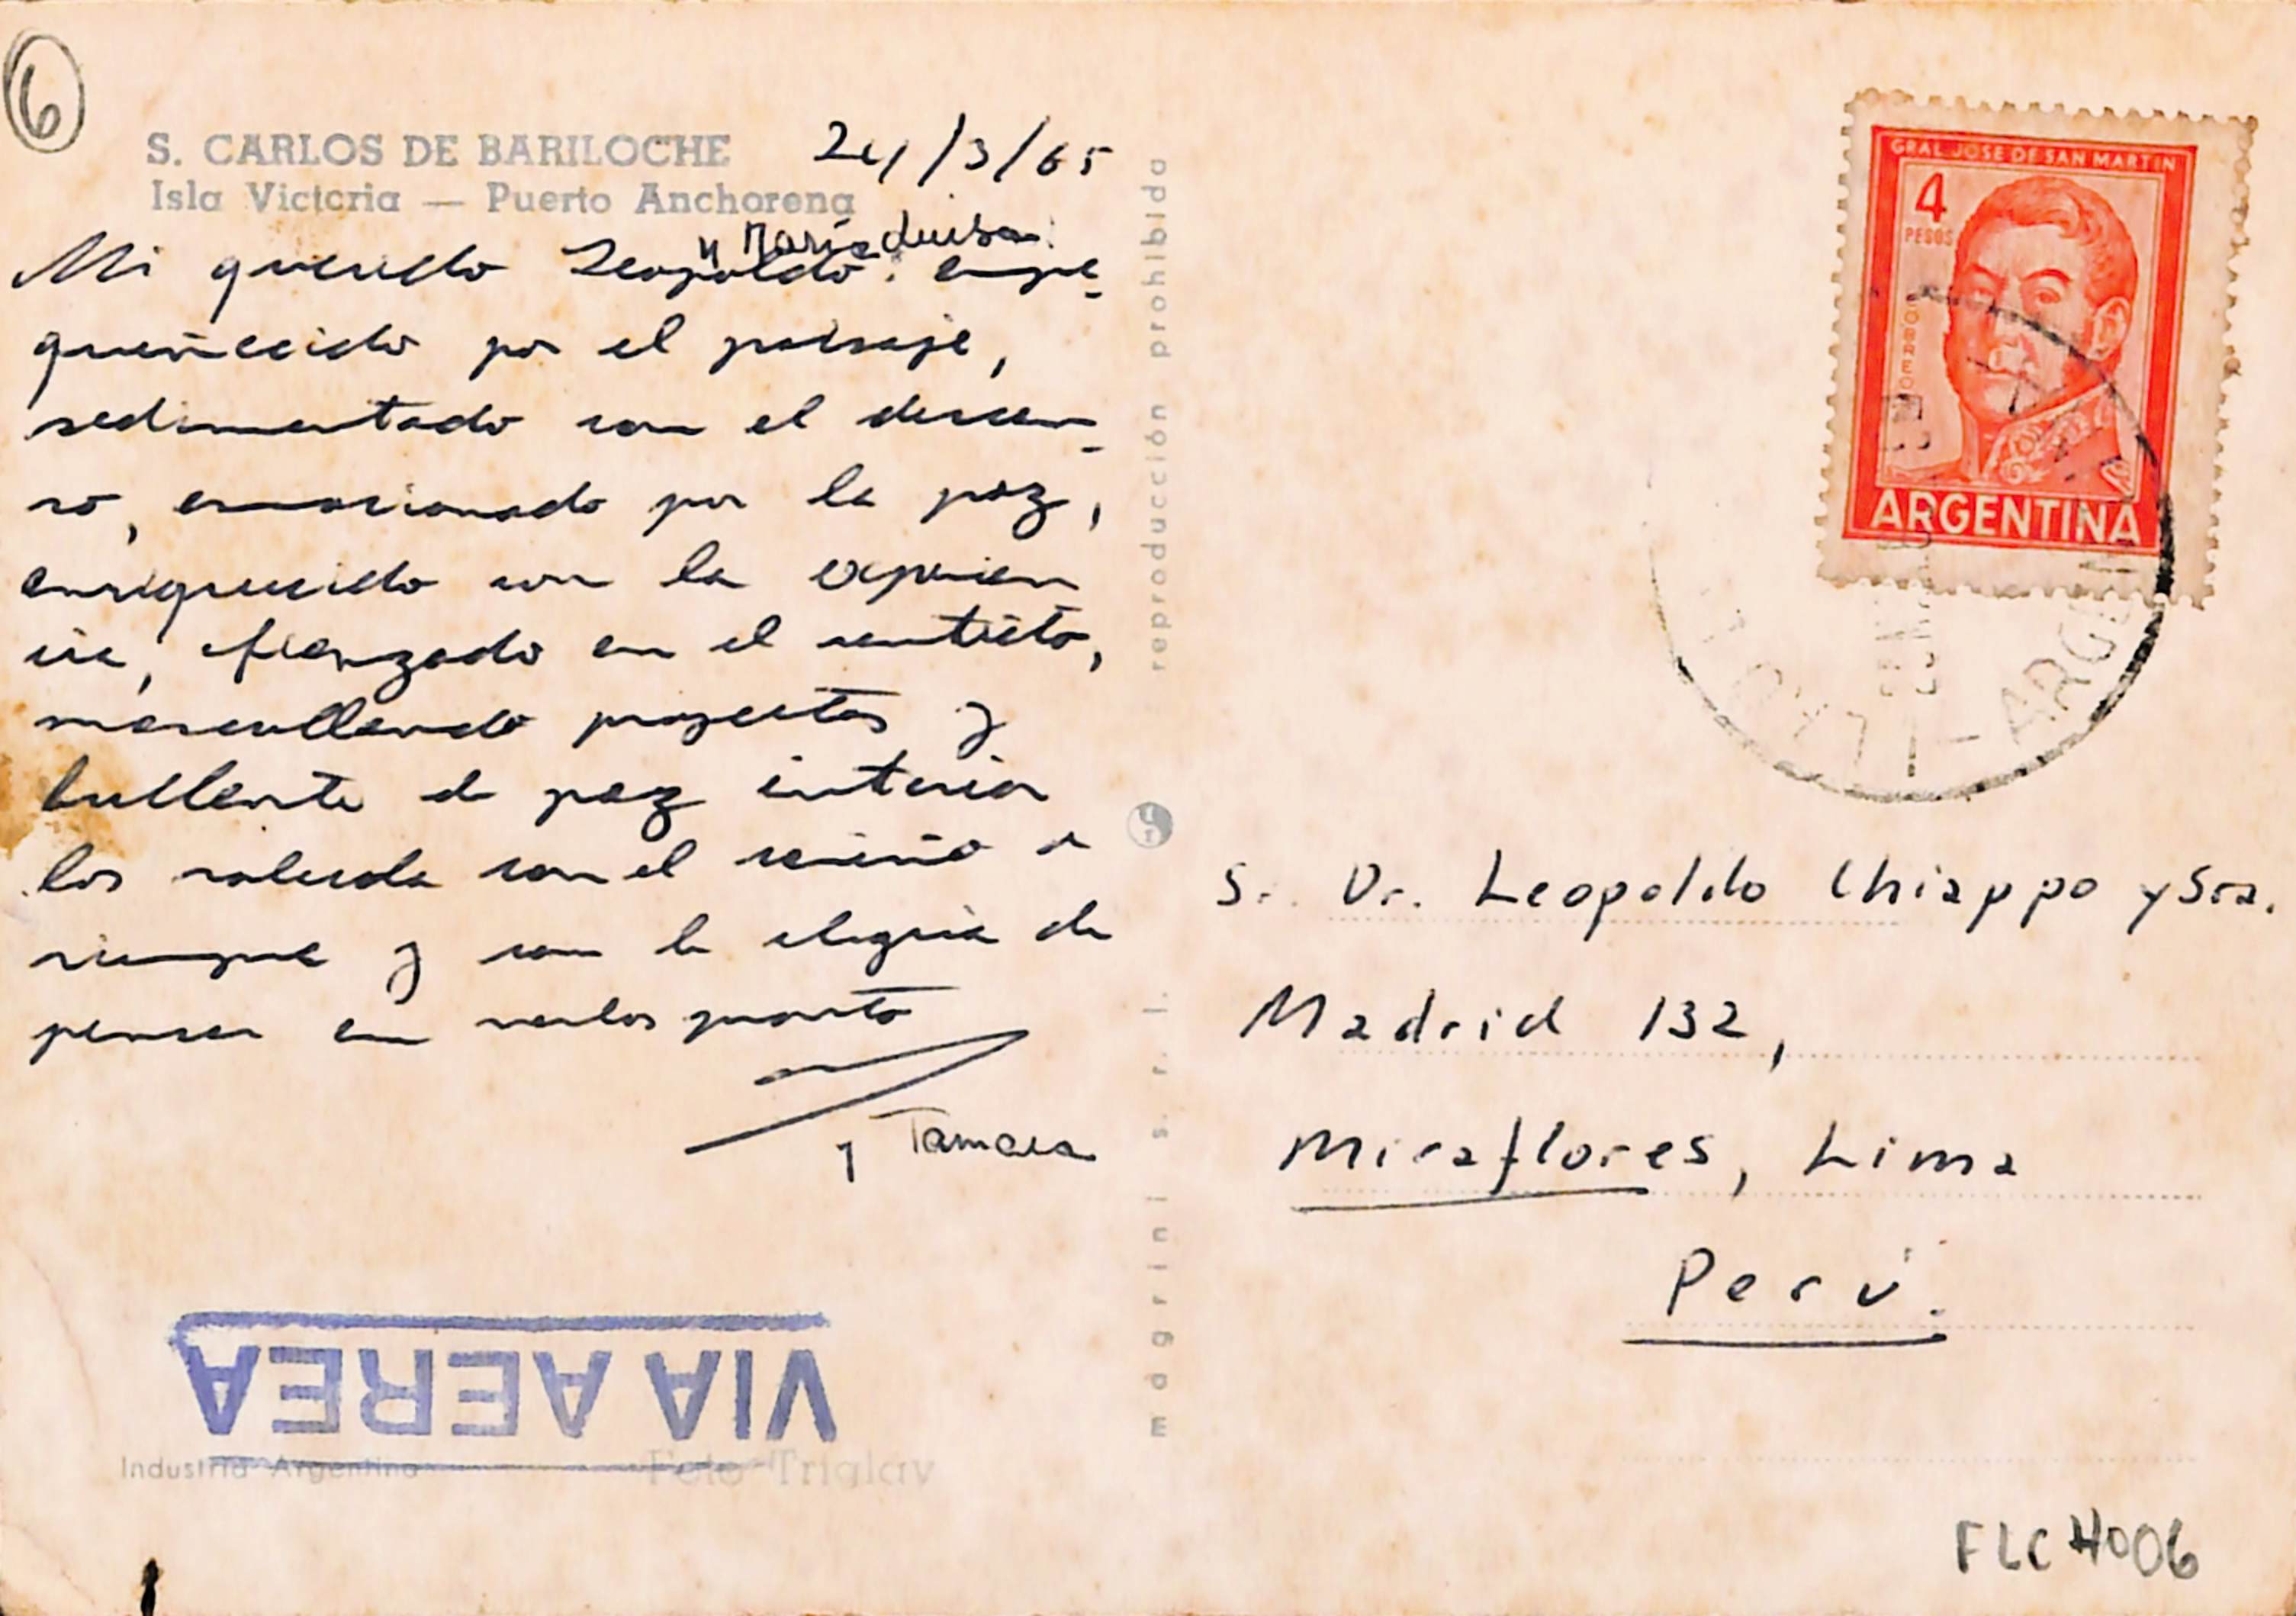 6
S. CARLOS DE BARILOCHE
24/3/65
Isla Victoria — Puerto Anchorena
y María Luisa:
Mi querido Leopoldo: empe-
queñecido por el paisaje,
sedimentado con el descan-
so, emocionado por la paz,
enriquecido con la experien
cia, afianzado en el sentido,
mascullando proyectos y
bullente de paz interior
los saluda con el cariño de
siempre y con la alegría de
pensar en verlos pronto
y Tamara
VIA AEREA
Industria Argentina
Foto Triglav
reproducción prohibida
magrini s. r. l.
GRAL JOSE DE SAN MARTIN
4
PESOS
CORREOS
ARGENTINA
ARGEN
Sr. Dr. Leopoldo Chiappo y Sra.
Madrid 132,
Miraflores, Lima
Perú.
FLCH006